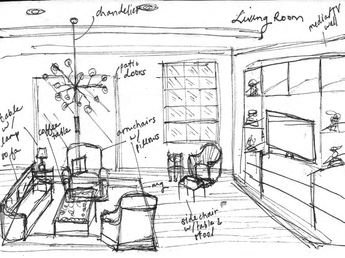 chandelier
Living Room
media/TV
wall
patio
doors
table
w/
lamp
sofa
coffee
table
armchairs
w/
pillows
rug
side chair
w/ table &
stool